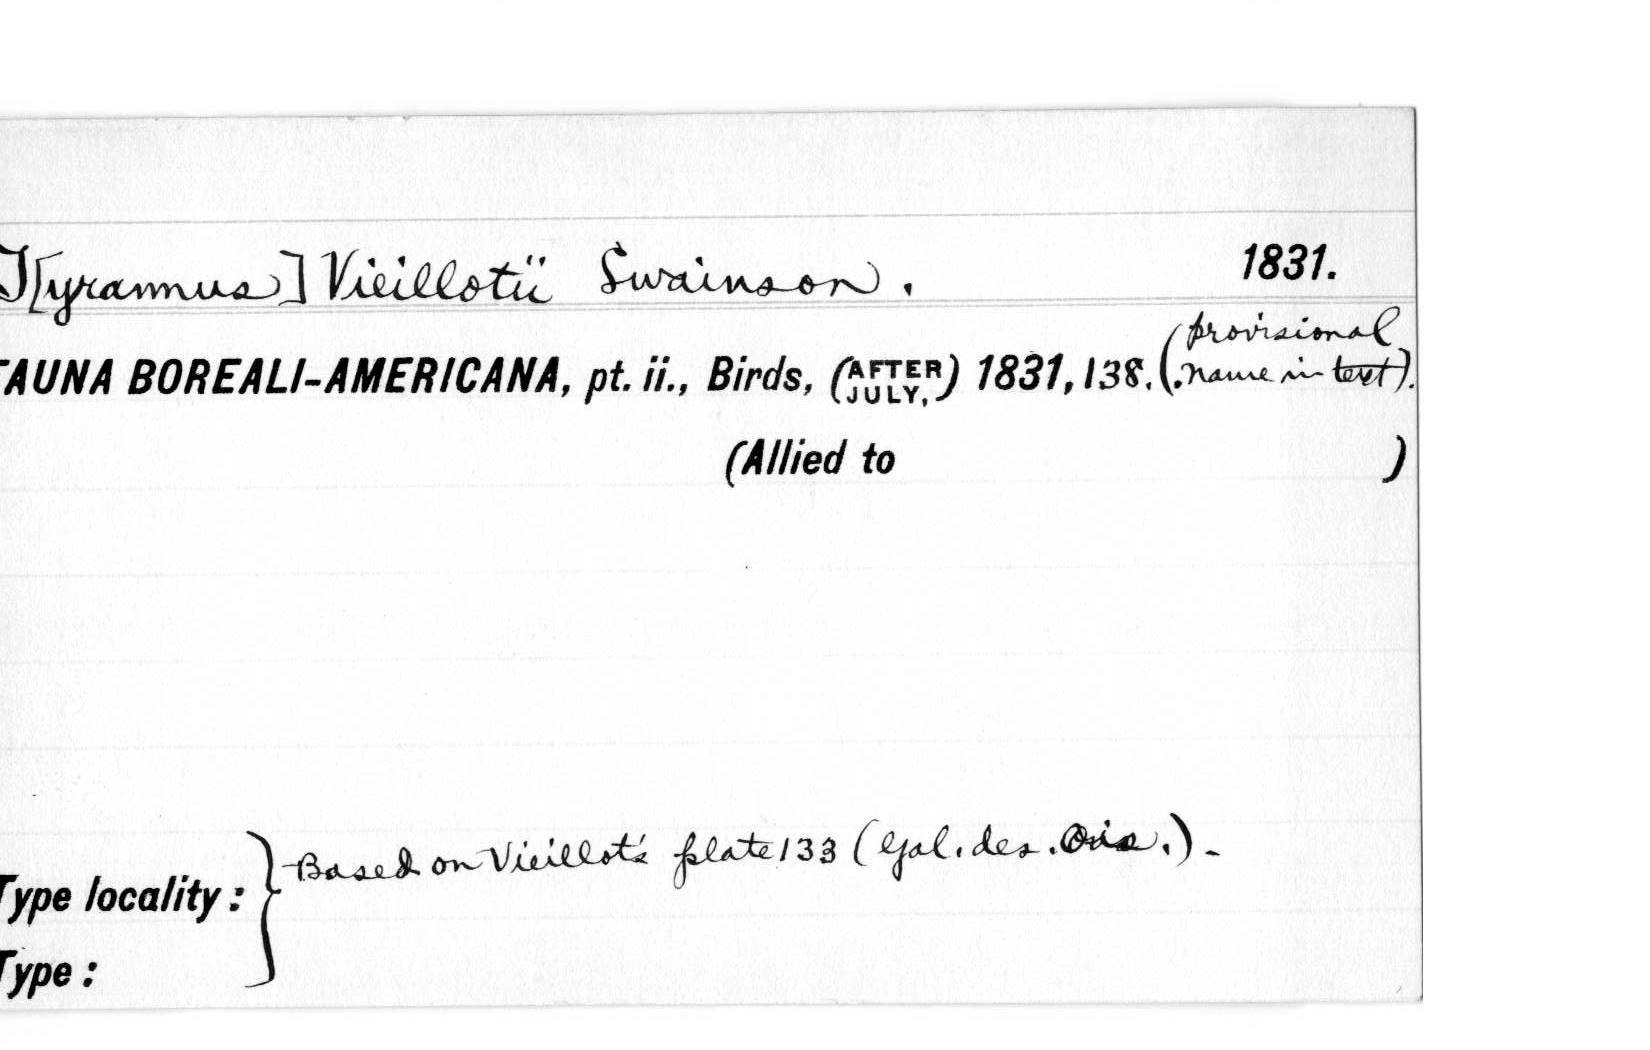 T[yrannus] Vieillotii Swainson. 1831.
FAUNA BOREALI-AMERICANA, pt. ii., Birds, (AFTER JULY,) 1831, 138. (provisional name in text).
(Allied to )
Based on Vieillot's plate 133 (Gal. des. Ois.).-
Type locality:
Type: